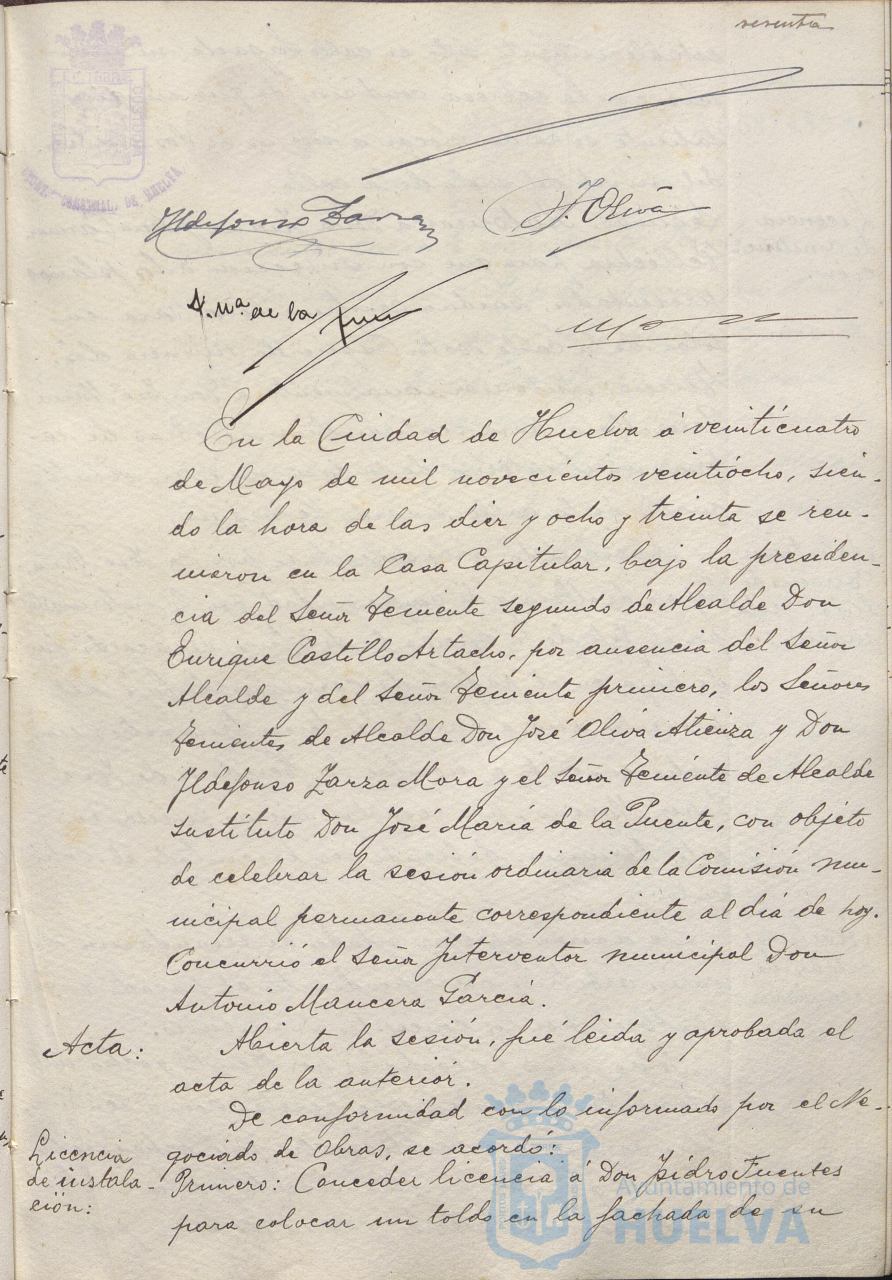 sesenta
Ildefonso Zarza
J. Oliva
J. Mª de la Puente
En la Ciudad de Huelva á veinticuatro
de Mayo de mil novecientos veintiocho, sien-
do la hora de las diez y ocho y treinta se reu-
nieron en la Casa Capitular, bajo la presiden-
cia del Señor Teniente segundo de Alcalde Don
Enrique Castillo Artacho, por ausencia del Señor
Alcalde y del Señor Teniente primero, los Señores
Tenientes de Alcalde Don José Oliva Atienza y Don
Ildefonso Zarza Mora y el Señor Teniente de Alcalde
sustituto Don José María de la Puente, con objeto
de celebrar la sesión ordinaria de la Comisión mu-
nicipal permanente correspondiente al día de hoy.
Concurrió el Señor Interventor municipal Don
Antonio Mancera García.
Acta:
Abierta la sesión, fué leida y aprobada el
acta de la anterior.
De conformidad con lo informado por el Ne-
Licencia
de instala-
ción:
gociado de Obras, se acordó:
Primero: Conceder licencia á Don Isidro Fuentes
para colocar un toldo en la fachada de su
Ayuntamiento de
HUELVA